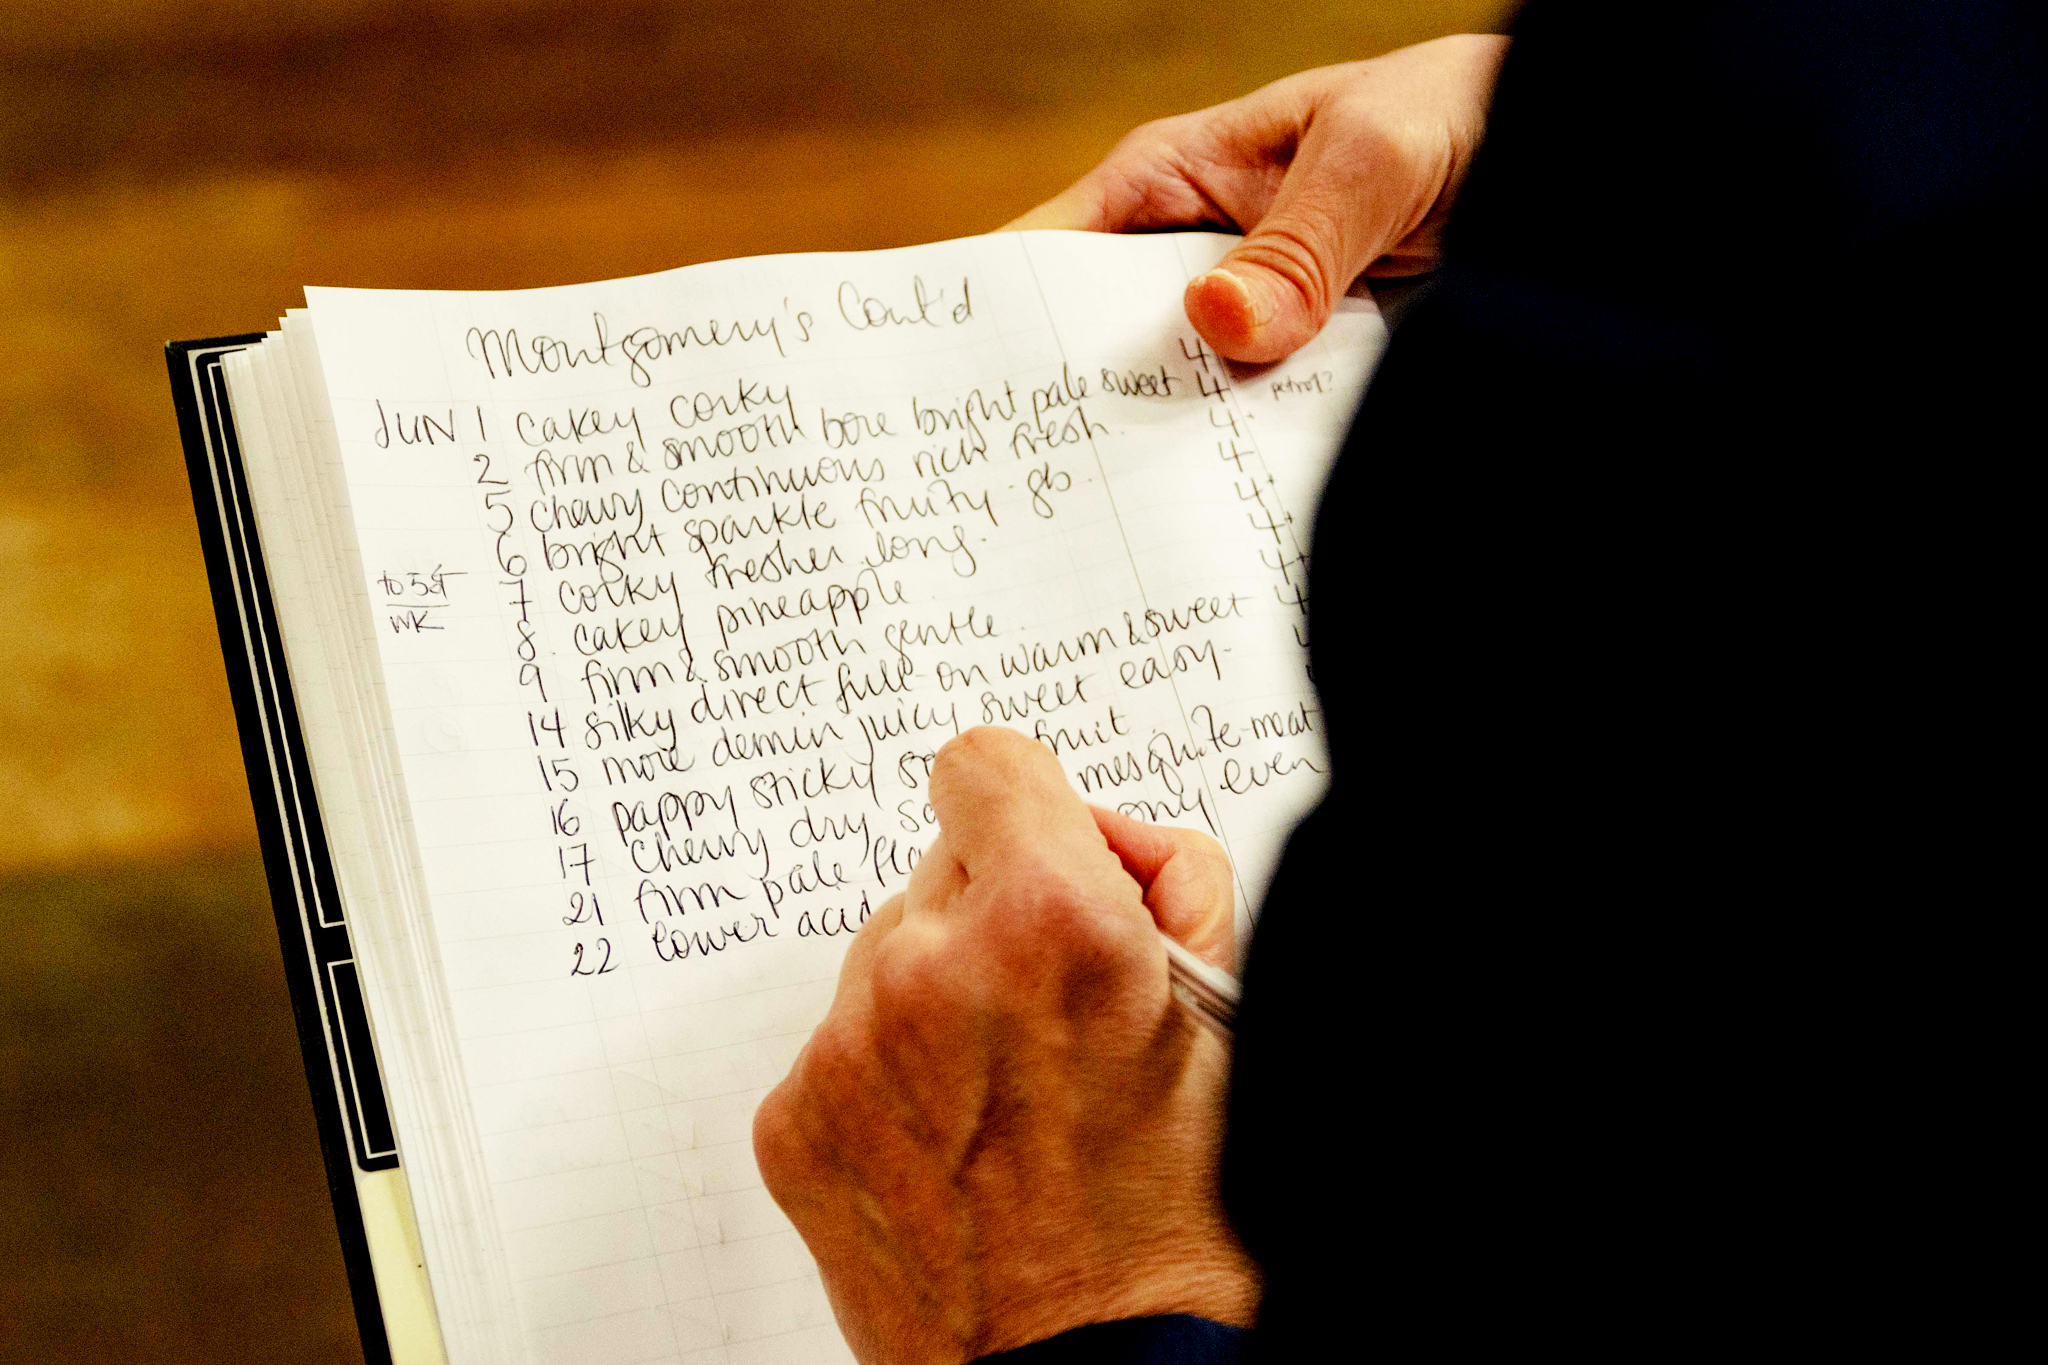 Montgomery's Cont'd
JUN 1 cakey corky 4
2 firm & smooth bore bright pale sweet 4 petrol?
5 chewy continuous rich fresh. 4+
6 bright sparkle fruity gb. 4
7 corky fresher long. 4+
8. cakey pineapple. 4+
9 firm & smooth gentle. 4+
to 5st
WK
14 silky direct full-on warm & sweet 4
15 more demin juicy sweet easy.
16 pappy sticky fruit
17 Chewy dry mesquite-meat
21 firm pale even
22 lower acid